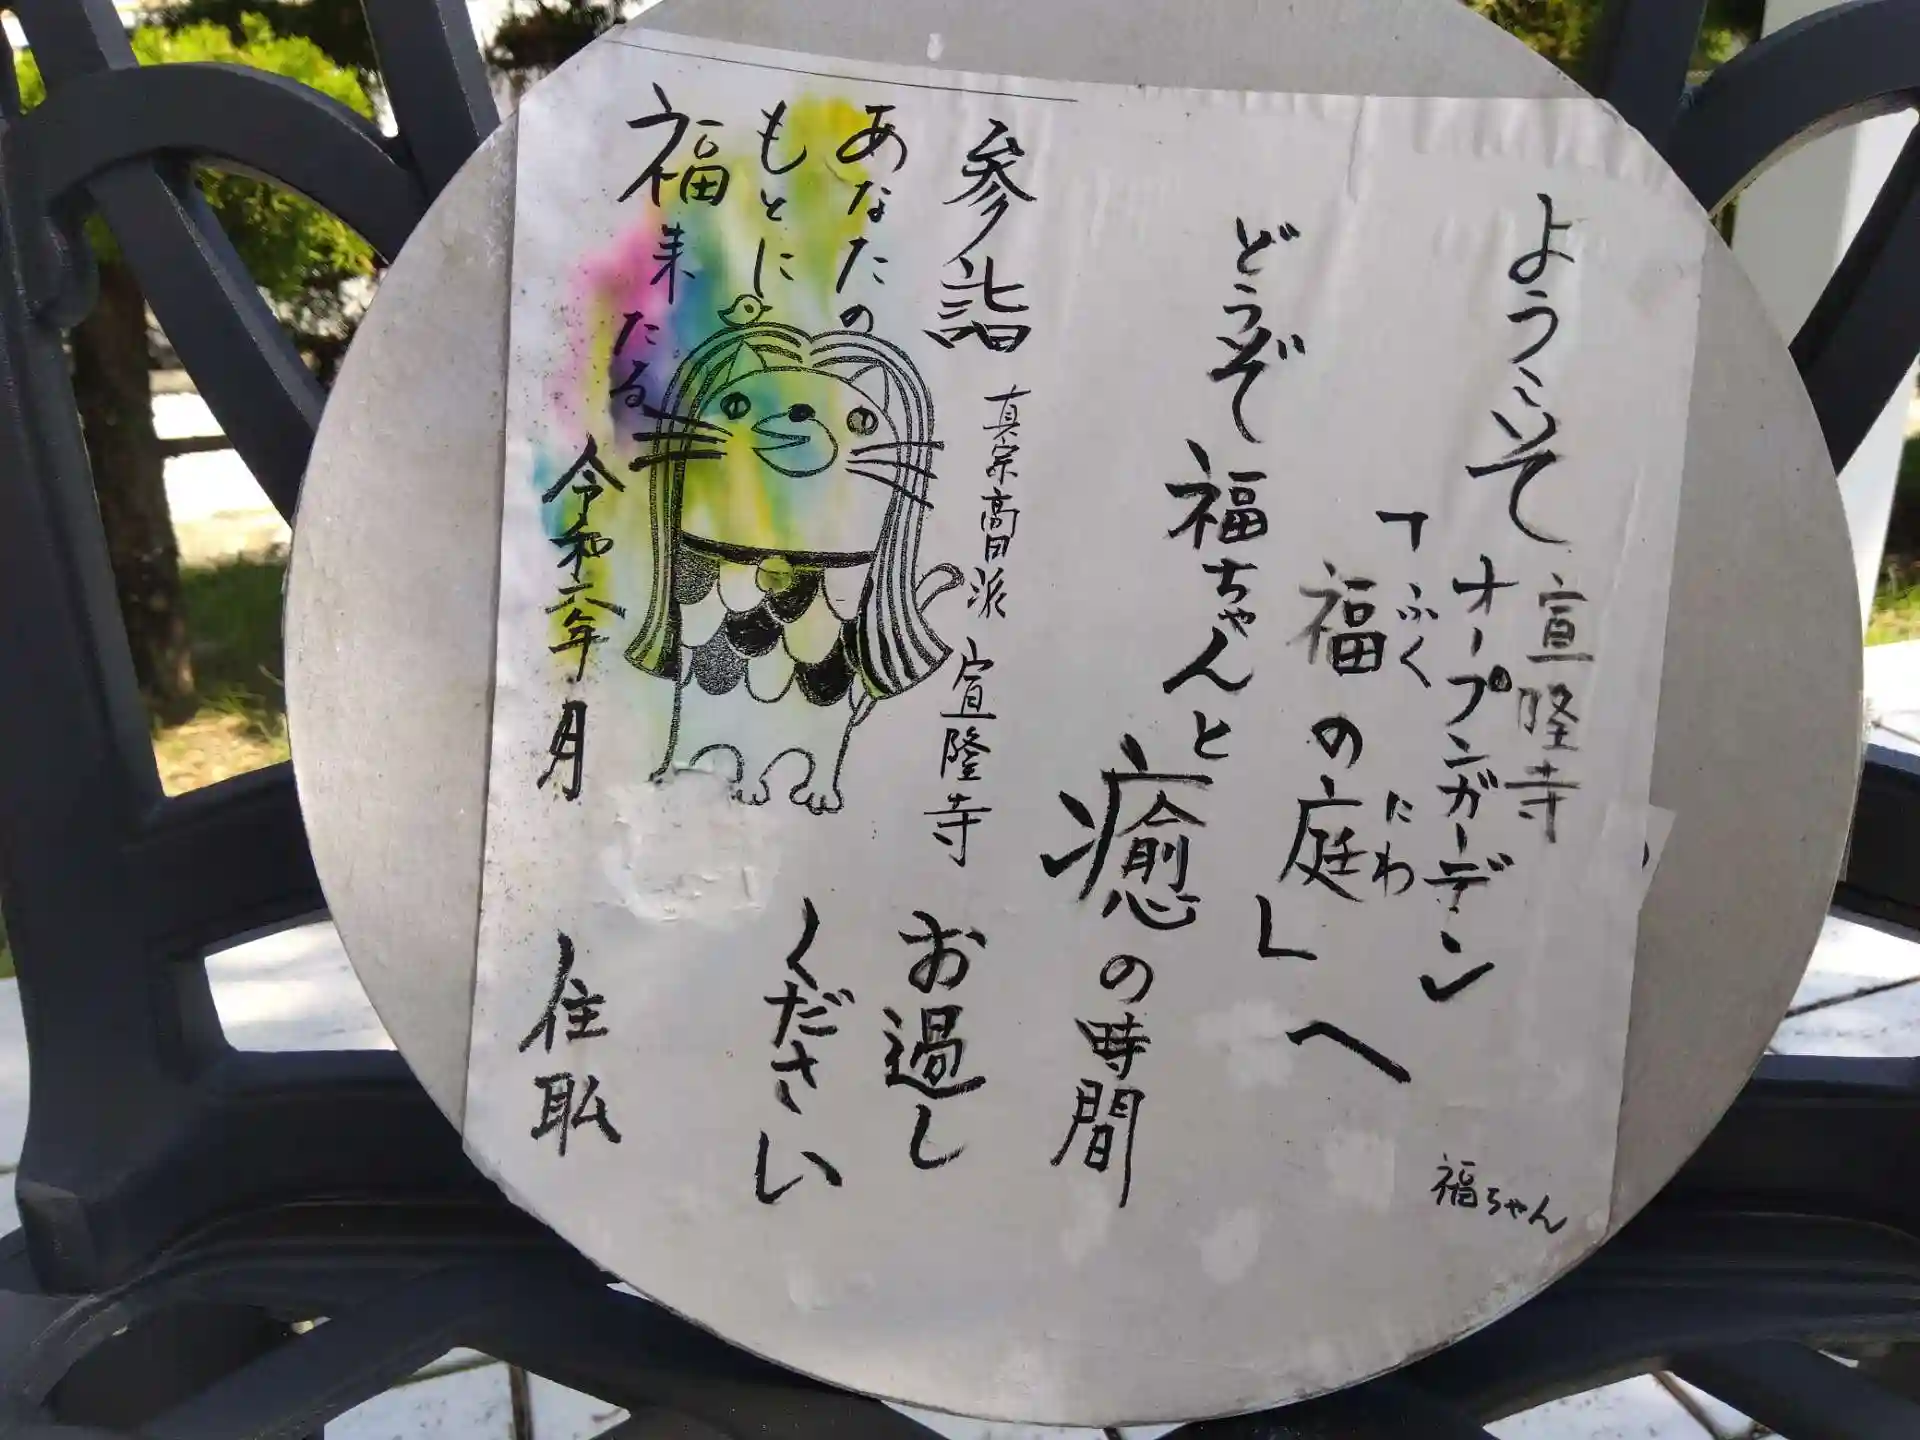 ようこいて
宣隆寺
オープンガーデン
「福の庭」へ
ふく
たわ
どうぞ福ちゃんと
癒の時間
お過し
ください
福ちゃん
参詣
真宗高田派 宣隆寺
あなたの
もとに
福来たる
令和六年 月
住